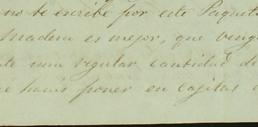 no te escribe por este Paquete
Madera es mejor, que venga
una regular cantidad de
hacis poner en cajitas